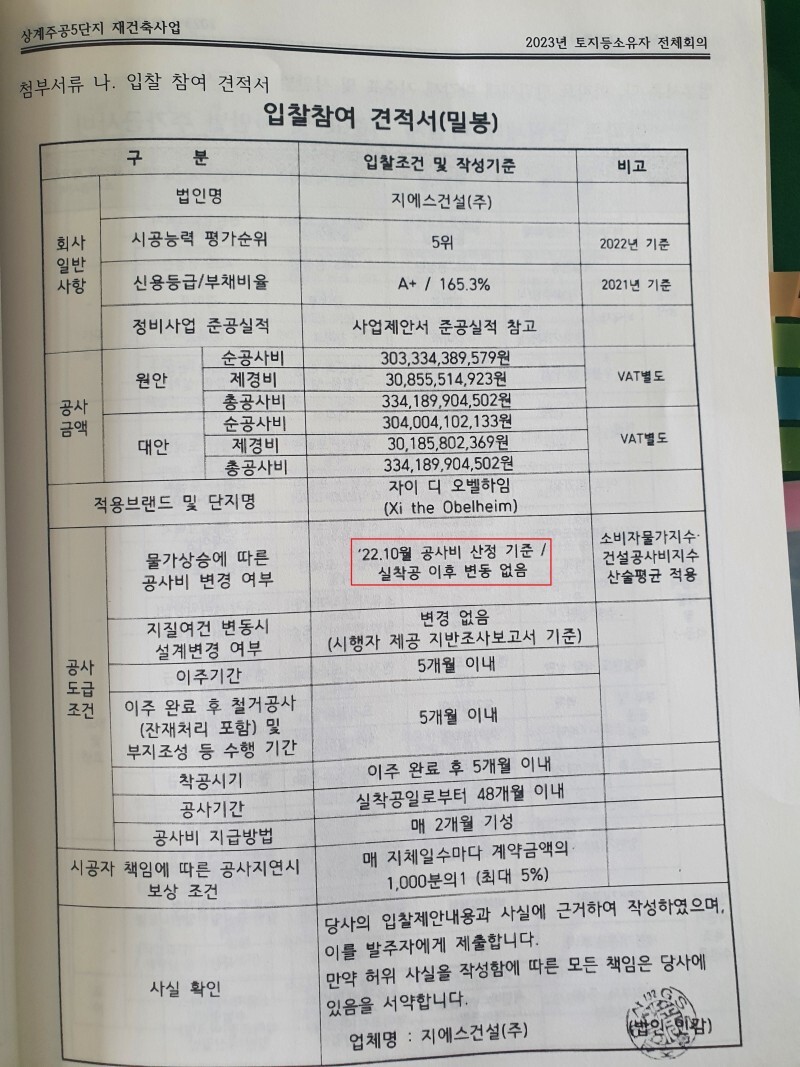 상계주공5단지 재건축사업
2023년 토지등소유자 전체회의
첨부서류 나. 입찰 참여 견적서
입찰참여 견적서(밀봉)
구 분
입찰조건 및 작성기준
비고
회사
일반
사항
법인명
지에스건설(주)
시공능력 평가순위
5위
2022년 기준
신용등급/부채비율
A+ / 165.3%
2021년 기준
정비사업 준공실적
사업제안서 준공실적 참고
공사
금액
원안
순공사비
303,334,389,579원
제경비
30,855,514,923원
총공사비
334,189,904,502원
VAT별도
대안
순공사비
304,004,102,133원
제경비
30,185,802,369원
총공사비
334,189,904,502원
VAT별도
적용브랜드 및 단지명
자이 디 오벨하임
(Xi the Obelheim)
공사
도급
조건
물가상승에 따른
공사비 변경 여부
'22.10월 공사비 산정 기준 /
실착공 이후 변동 없음
소비자물가지수·
건설공사비지수
산술평균 적용
지질여건 변동시
설계변경 여부
변경 없음
(시행자 제공 지반조사보고서 기준)
이주기간
5개월 이내
이주 완료 후 철거공사
(잔재처리 포함) 및
부지조성 등 수행 기간
5개월 이내
착공시기
이주 완료 후 5개월 이내
공사기간
실착공일로부터 48개월 이내
공사비 지급방법
매 2개월 기성
시공자 책임에 따른 공사지연시
보상 조건
매 지체일수마다 계약금액의
1,000분의1 (최대 5%)
사실 확인
당사의 입찰제안내용과 사실에 근거하여 작성하였으며,
이를 발주자에게 제출합니다.
만약 허위 사실을 작성함에 따른 모든 책임은 당사에
있음을 서약합니다.
업체명 : 지에스건설(주)
(법인 인감)